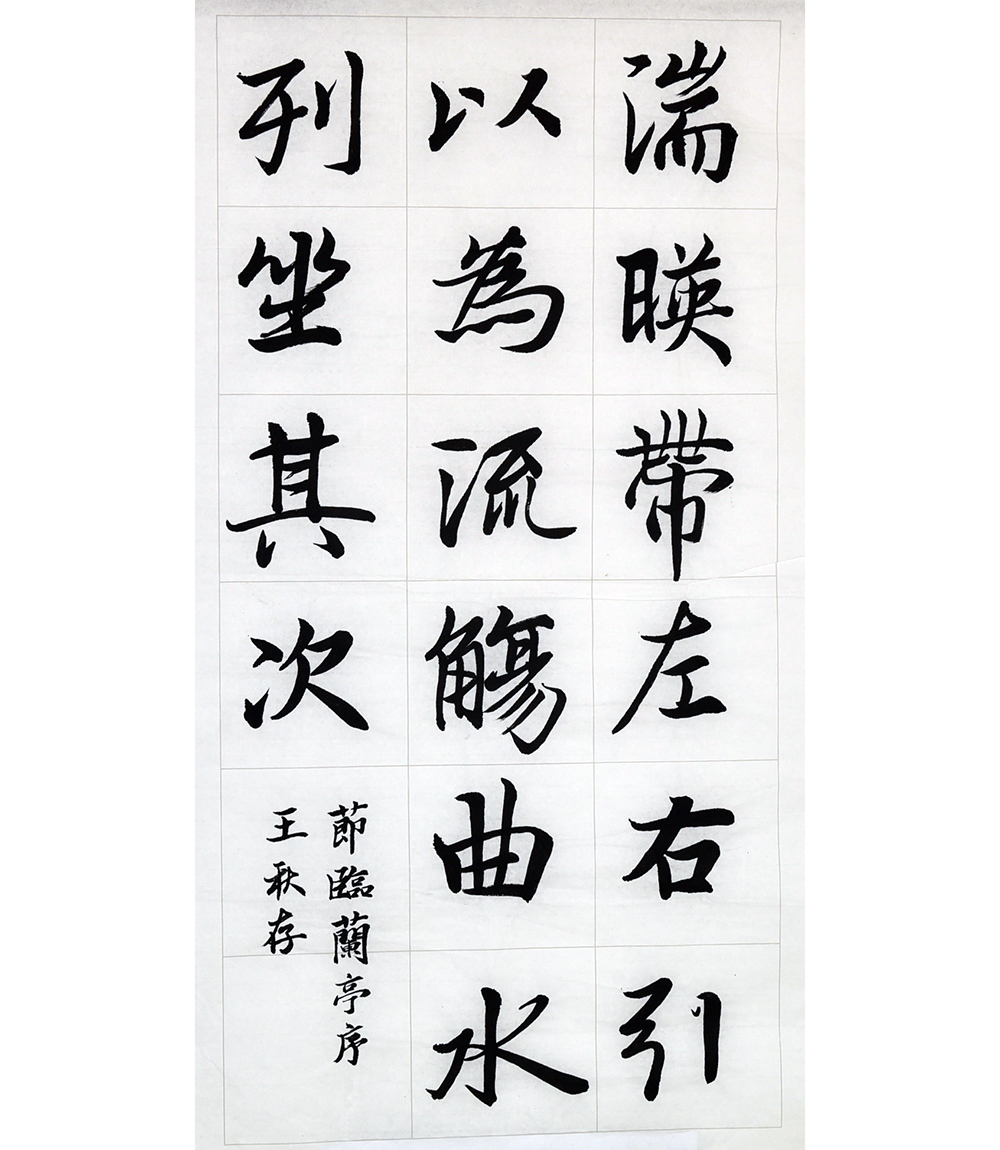 湍暎帶左右引
以為流觴曲水
列坐其次
節臨蘭亭序
王秋存